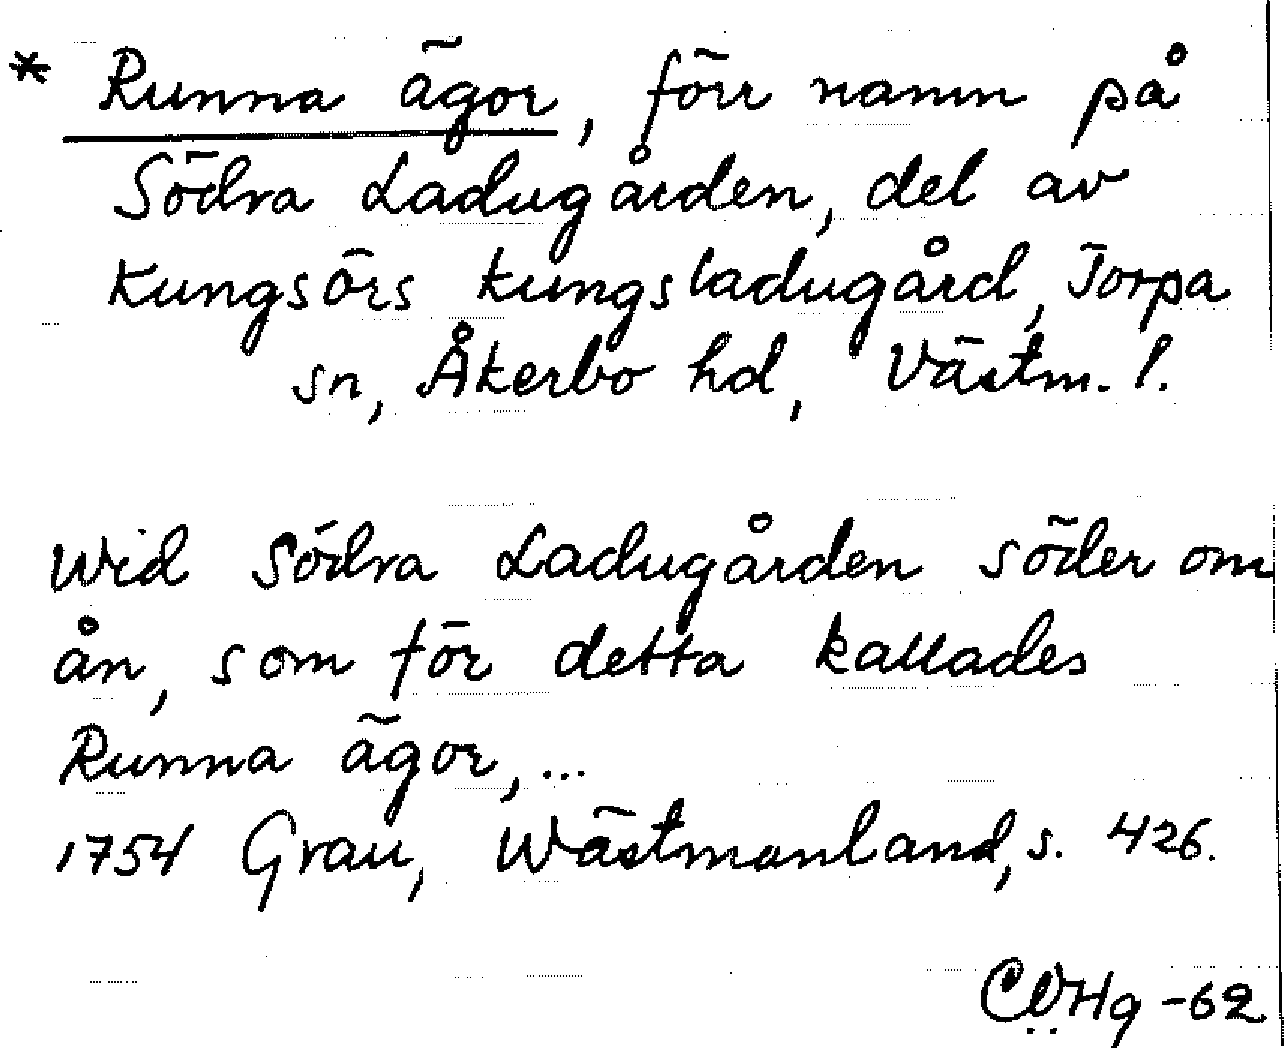 * Runna ägor, förr namn på
Södra Ladugården, del av
Kungsörs kungsladugård, Torpa
sn, Åkerbo hd, Västm. l.
Wid Södra Ladugården söder om
ån, som för detta kallades
Runna ägor, ...
1754 Grau, Wästmanland, s. 426.
CÖHg -62